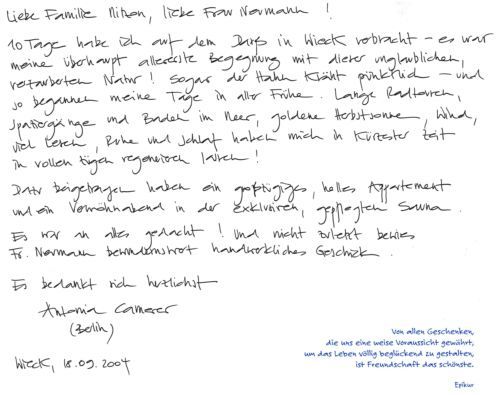 Liebe Familie Nitzon, liebe Frau Normann !
10 Tage habe ich auf dem Darß in Wieck verbracht – es war
meine überhaupt allererste Begegnung mit dieser unglaublichen,
verzauberten Natur ! Sogar der Hahn kräht pünktlich – und
so begannen meine Tage in aller Frühe. Lange Radtouren,
Spaziergänge und Baden im Meer, goldene Herbstsonne, Wind,
viel Lesen, Ruhe und Schlaf haben mich in kürzester Zeit
in vollen Zügen regenerieren lassen !
Dazu beigetragen haben ein großzügiges, helles Appartement
und ein Verwöhnabend in der exklusiven, gepflegten Sauna.
Es war an alles gedacht ! Und nicht zuletzt bewies
Fr. Normann bewundernswert handwerkliches Geschick.
Es bedankt sich herzlichst
Antonia Camerer
(Berlin)
Wieck, 18.09.2004
Von allen Geschenken,
die uns eine weise Voraussicht gewährt,
um das Leben völlig beglückend zu gestalten,
ist Freundschaft das schönste.
Epikur